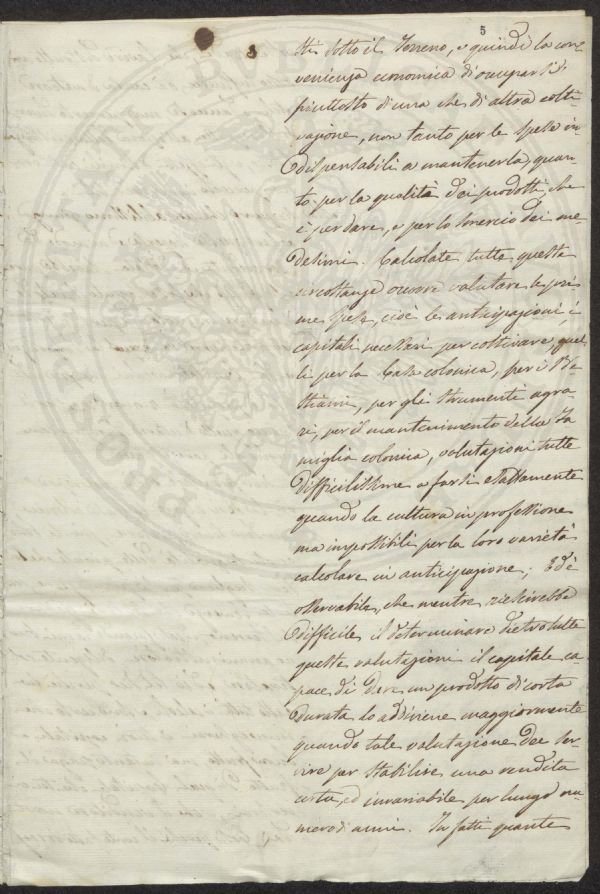 5
tti sotto il Terreno, e quindi la con-
venienza economica di occuparsi
piuttosto di una che di altra colti
vazione, non tanto per le spese in
dispensabili a mantenerla, quan
to per la qualità dei prodotti, che
è per dare, e per lo smercio dei me-
desimi. Calcolate tutte queste
circostanze occorre valutare le pri
me spese, cioè le anticipazioni, i
capitali necessari per coltivare quel
li per la Casa colonica, per i Be
stiami, per gli strumenti agra
ri, per il mantenimento della Fa
miglia colonica, valutazioni tutte
difficilissime a farsi esattamente
quando la cultura in professione
ma impossibili per la loro varietà
calcolare in anticipazione; Ed è
osservabile, che mentre riescirebbe
difficile il determinare dietro tutte
queste valutazioni il capitale ca
pace di dare un prodotto di corta
durata lo addiviene maggiormente
quando tale valutazione dee ser
vire per stabilire una rendita
certa, ed invariabile per lungo nu
mero di anni. Infatti quante